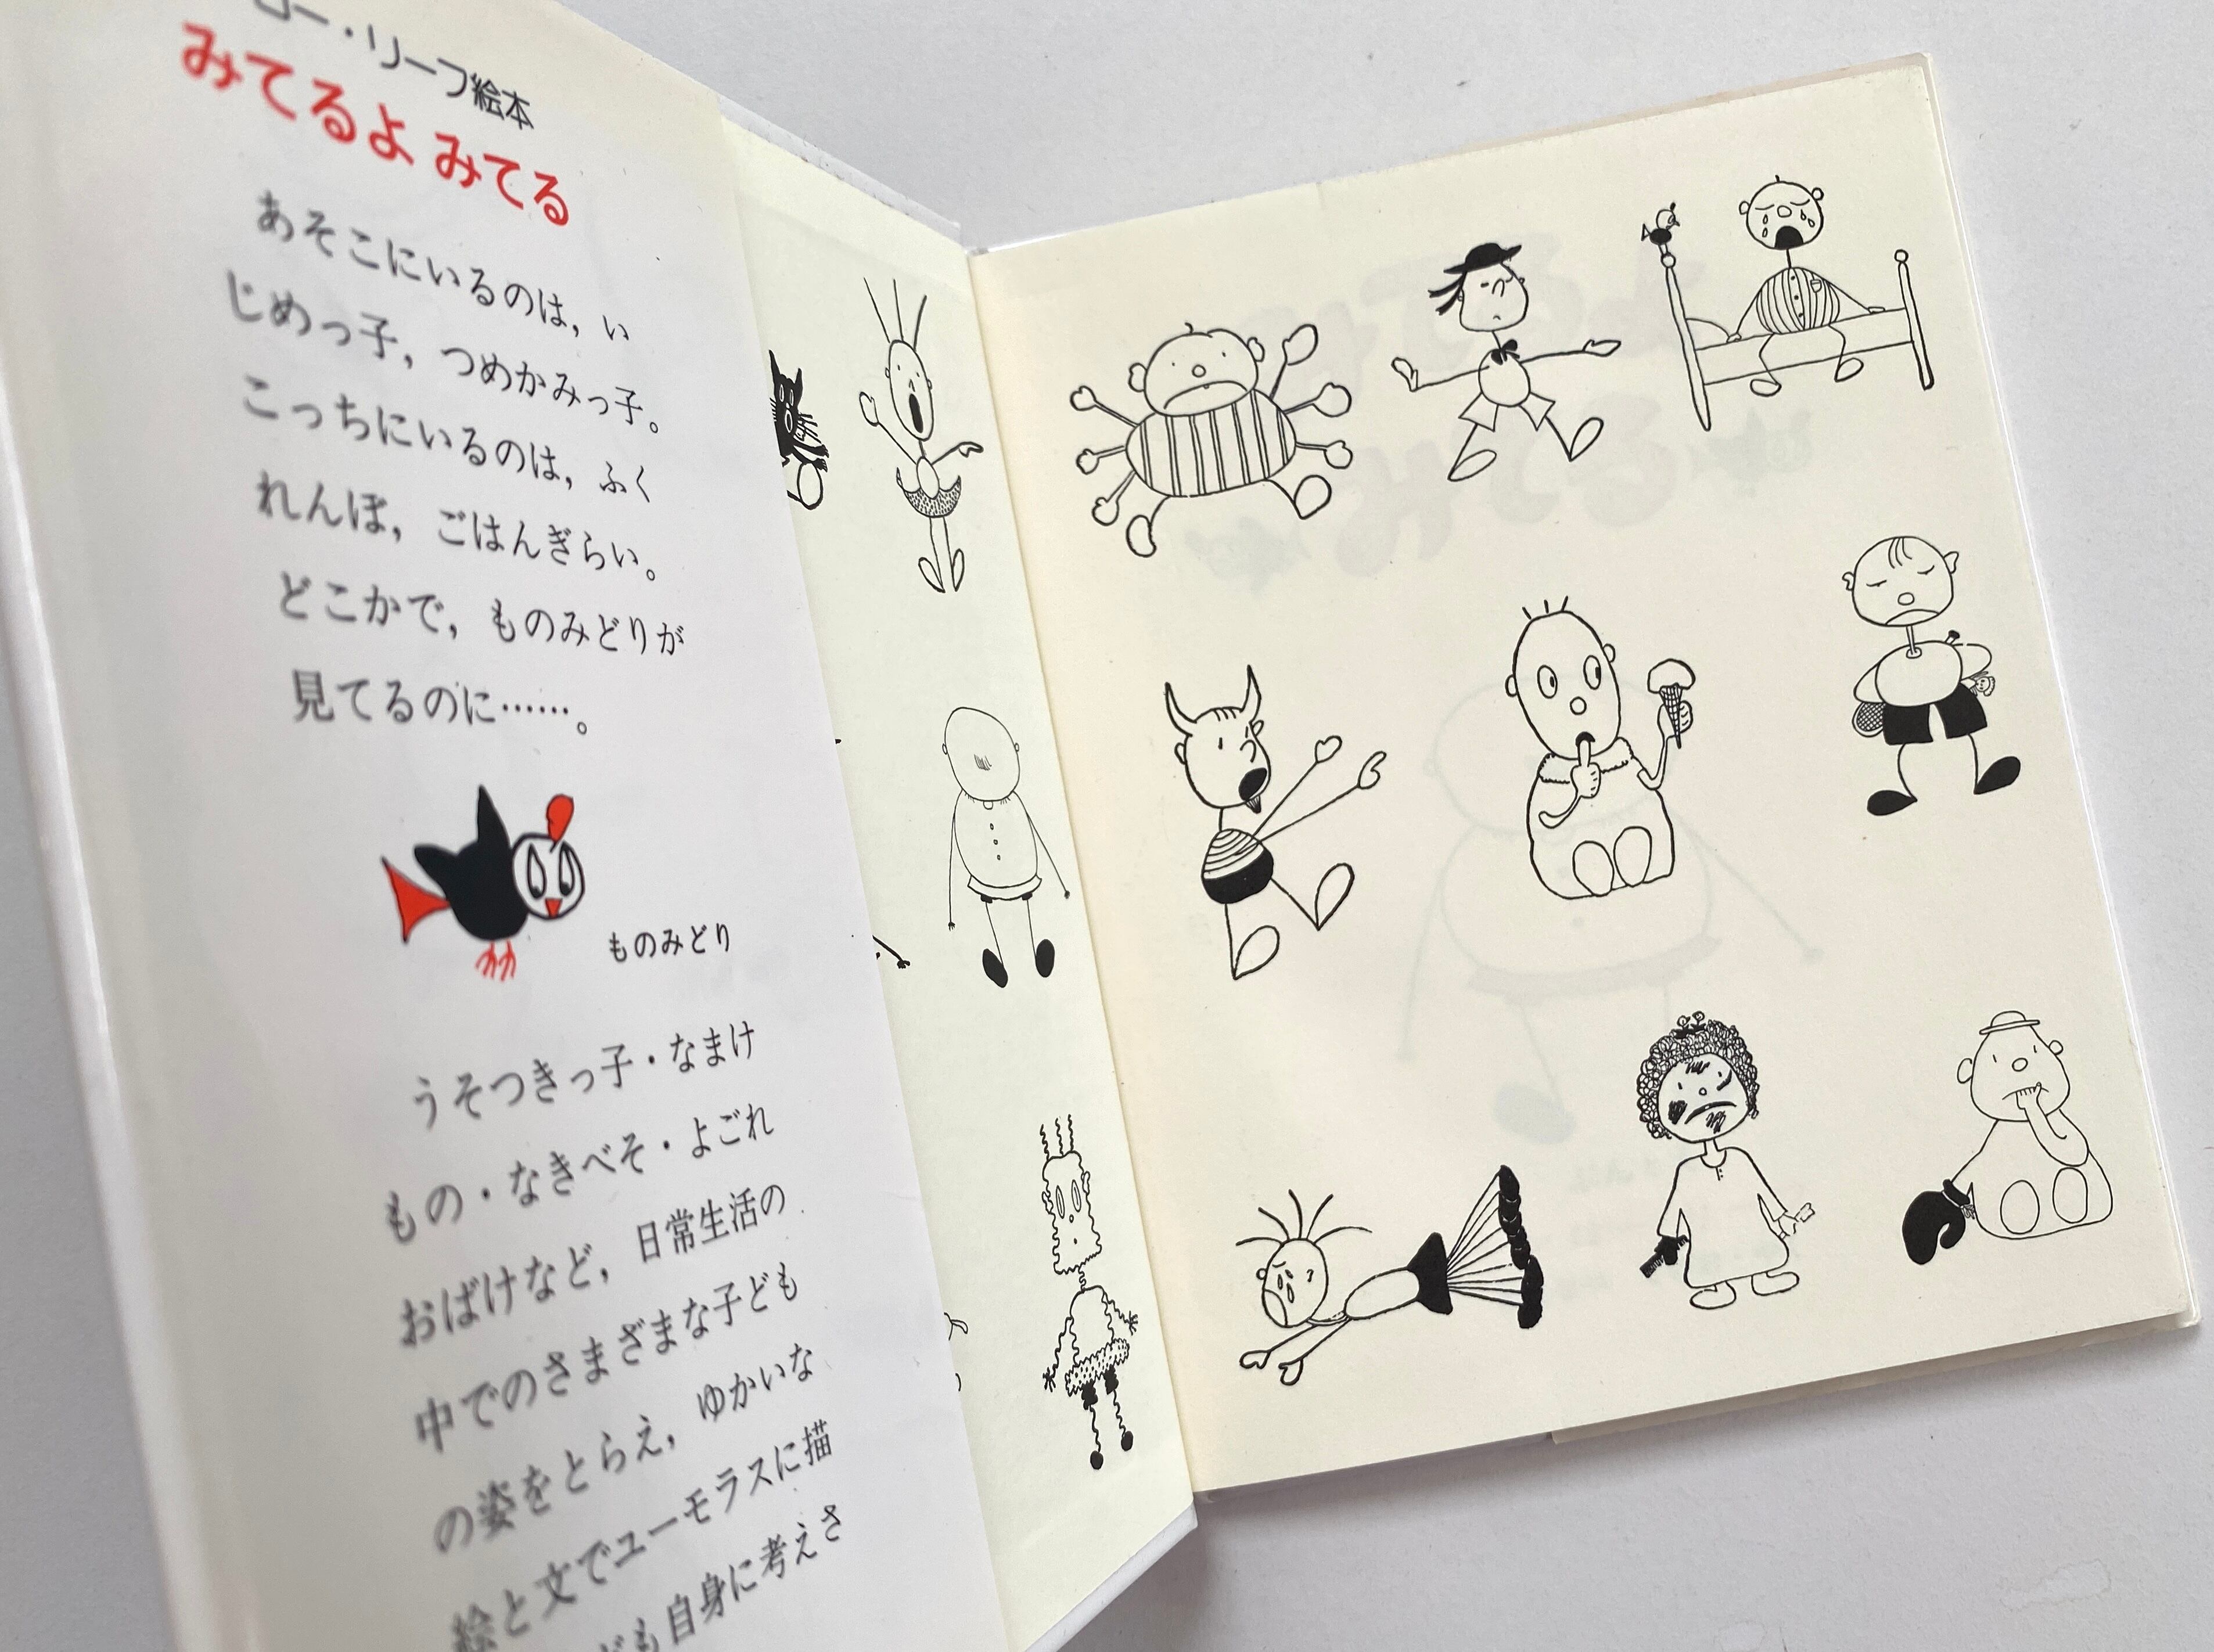 ロー・リーフ絵本
みてるよ みてる
あそこにいるのは，い
じめっ子，つめかみっ子。
こっちにいるのは，ふく
れんぼ，ごはんぎらい。
どこかで，ものみどりが
見てるのに……。
ものみどり
うそつきっ子・なまけ
もの・なきべそ・よごれ
おばけなど，日常生活の
中でのさまざまな子ども
の姿をとらえ，ゆかいな
絵と文でユーモラスに描
ども自身に考えさ